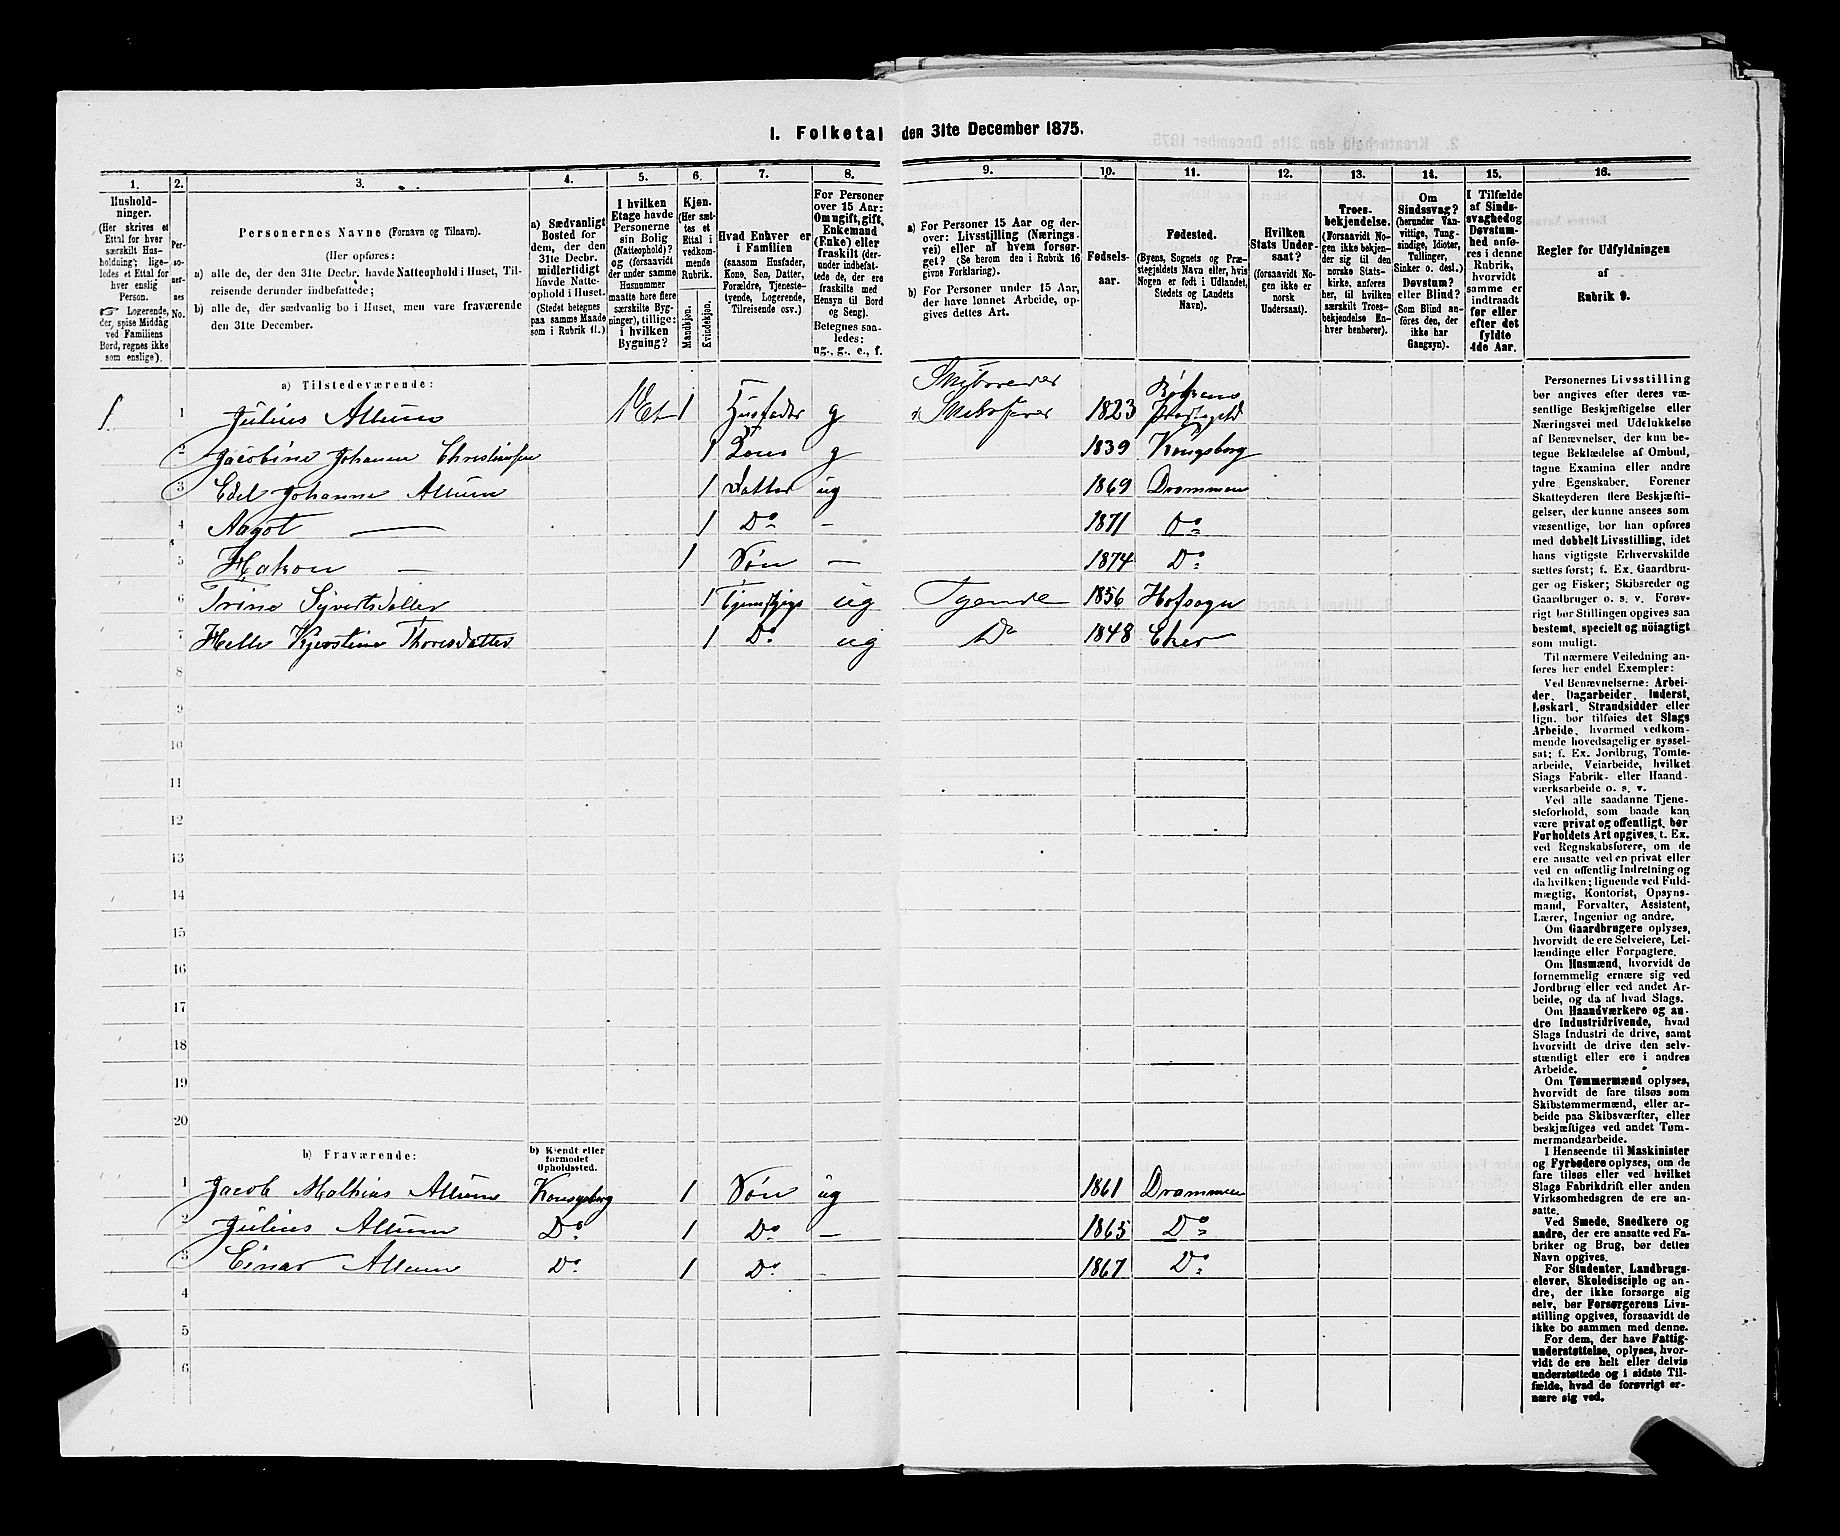 1. Folketal den 31te December 1875.
1.
2.
3.
4.
5.
6.
7.
8.
9.
10.
11.
12.
13.
14.
15.
16.
Hushold-
ninger.
(Her skrives et
Ettal for hver
særskilt Hus-
holdning; lige-
ledes et Ettal for
hver enslig
Person.
☞ Logerende,
der, spise Middag
ved Familiens
Bord, regnes ikke
som enslige).
Per-
so-
ner-
nes
No.
Personernes Navne (Fornavn og Tilnavn).
(Her opføres:
a) alle de, der den 31te Decbr. havde Natteophold i Huset, Til-
reisende derunder indbefattede;
b) alle de, der sædvanlig bo i Huset, men vare fraværende
den 31te December.
a) Sædvanligt
Bosted for
dem, der den
31te Decbr.
midlertidigt
havde Natte-
ophold i Huset.
(Stedet betegnes
paa samme Maade
som i Rubrik 11.)
I hvilken
Etage havde
Personerne
sin Bolig
(Natteophold)?
og (forsaavidt
der under samme
Husnummer
maatte høre flere
særskilte Byg-
ninger), tillige:
i hvilken
Bygning?
Kjøn.
(Her sæt-
tes et
Ettal i
vedkom-
mende
Rubrik.
Mandkjøn.
Kvindekjøn.
Hvad Enhver er
i Familien
(saasom Husfader,
Kone, Søn, Datter,
Forældre, Tjeneste-
tyende, Logerende,
Tilreisende osv.)
For Personer
over 15 Aar:
Om ugift, gift,
Enkemand
(Enke) eller
fraskilt (der-
under indbefat-
tede de, der ere
fraskilte med
Hensyn til Bord
og Seng).
Betegnes saa-
ledes:
ug., g., e., f.
a) For Personer 15 Aar og der-
over: Livsstilling (Nærings-
vei) eller af hvem forsør-
get? (Se herom den i Rubrik 16
givne Forklaring).
b) For Personer under 15 Aar,
der have lønnet Arbeide, op-
gives dettes Art.
Fødsels-
aar.
Fødested.
(Byens, Sognets og Præ-
stegjeldets Navn eller, hvis
Nogen er født i Udlandet,
Stedets og Landets
Navn).
Hvilken
Stats Under-
saat?
(forsaavidt No-
gen ikke er
norsk
Undersaat).
Troes-
bekjendelse.
(Forsaavidt No-
gen ikke bekjen-
der sig til den
norske Stats-
kirke, anføres
her, til hvilken
særskilt Troes-
bekjendelse En-
hver henhører).
Om
Sindssvag?
(herunder Van-
vittige, Tung-
sindige, Idioter,
Tullinger,
Sinker o. desl.)
Døvstum?
eller Blind?
(Som Blind an-
føres den, der
ikke har
Gangsyn).
I Tilfælde
af Sinds-
svaghed og
Døvstum-
hed anfø-
res i denne
Rubrik,
hvorvidt
samme er
indtraadt
før eller
efter det
fyldte
4de Aar.
Regler for Udfyldningen
af
Rubrik 9.
a) Tilstedeværende:
Skibsreder
1 1 Julius Allum 1 Et 1 Husfader g Skibsfører 1823
2 Jacobine Johanne Christensen 1 Kone g 1839 Kongsberg
3 Edel Johanne Allum 1 Datter ug 1869 Drammen
4 Aagot — 1 Do – 1871 Do
5 Hakon — 1 Søn – 1874 Do
6 Trine Syvertsdatter 1 ug Tyende 1856 Hofsogn
7 Helle Kjerstine Thoresdatter 1 Do ug Do 1848 Eker
8
9
10
11
12
13
14
15
16
17
18
19
20
b) Fraværende:
b) Kjendt eller
formodet
Opholdssted.
1 Jacob Mathias Allum Kongsberg 1 Søn ug 1861 Drammen
2 Julius Allum Do 1 Do – 1865 Do
3 Einar Allum Do 1 Do – 1867 Do
4
5
6
Personernes Livsstilling
bør angives efter deres væ-
sentlige Beskjæftigelse eller
Næringsvei med Udelukkelse
af Benævnelser, der kun be-
tegne Beklædelse af Ombud,
tagne Examina eller andre
ydre Egenskaber. Forener
Skatteyderen flere Beskjæfti-
gelser, der kunne ansees som
væsentlige, bør han opføres
med dobbelt Livsstilling, idet
hans vigtigste Erhvervskilde
sættes først; f. Ex. Gaardbru-
ger og Fisker; Skibsreder og
Gaardbruger o. s. v. Forøv-
rigt bør Stillingen opgives saa
bestemt, specielt og nøiagtigt
som muligt.
Til nærmere Veiledning an-
føres her endel Exempler:
Ved Benævnelserne: Arbei-
der, Dagarbeider, Inderst,
Løskarl, Strandsidder eller
lign. bør tilføies det Slags
Arbeide, hvormed vedkom-
mende hovedsagelig er syssel-
sat; f. Ex. Jordbrug, Tomte-
arbeide, Veiarbeide, hvilket
Slags Fabrik- eller Haand-
værksarbeide o. s. v.
Ved alle saadanne Tjene-
steforhold, som baade kan
være privat og offentligt, bør
Forholdets Art opgives, t. Ex.
ved Regnskabsførere, om de
ere ansatte ved en privat eller
ved en offentlig Indretning og
da hvilken; lignende ved Fuld-
mægtig, Kontorist, Opsyns-
mand, Forvalter, Assistent,
Lærer, Ingeniør og andre.
Om Gaardbrugere oplyses,
hvorvidt de ere Selveiere, Lei-
lændinge eller Forpagtere.
Om Husmænd, hvorvidt de
fornemmelig ernære sig ved
Jordbrug eller ved andet Ar-
beide, og da af hvad Slags.
Om Haandværkere og an-
dre Industridrivende, hvad
Slags Industri de drive, samt
hvorvidt de drive den selv-
stændigt eller ere i andres
Arbeide.
Om Tømmermænd oplyses,
hvorvidt de fare tilsøs som
Skibstømmermænd, eller ar-
beide paa Skibsværfter, eller
beskjæftiges ved andet Tøm-
mermandsarbeide.
I Henseende til Maskinister
og Fyrbødere oplyses, om de
fare tilsøs eller ved hvilket
Slags Fabrikdrift eller anden
Virksomhedsgren de ere an-
satte.
Ved Smede, Snedkere og
andre, der ere ansatte ved Fa-
briker og Brug, bør dettes
Navn opgives.
For Studenter, Landbrugs-
elever, Skoledisciple og an-
dre, der ikke forsørge sig
selv, bør Forsørgerens Livs-
stilling opgives, forsaavidt de
ikke bo sammen med denne.
For dem, der have Fattig-
understøttelse, oplyses, hvor-
vidt de ere helt eller delvis
understøttede og i sidste Til-
fælde, hvad de forøvrigt er-
nære sig ved.